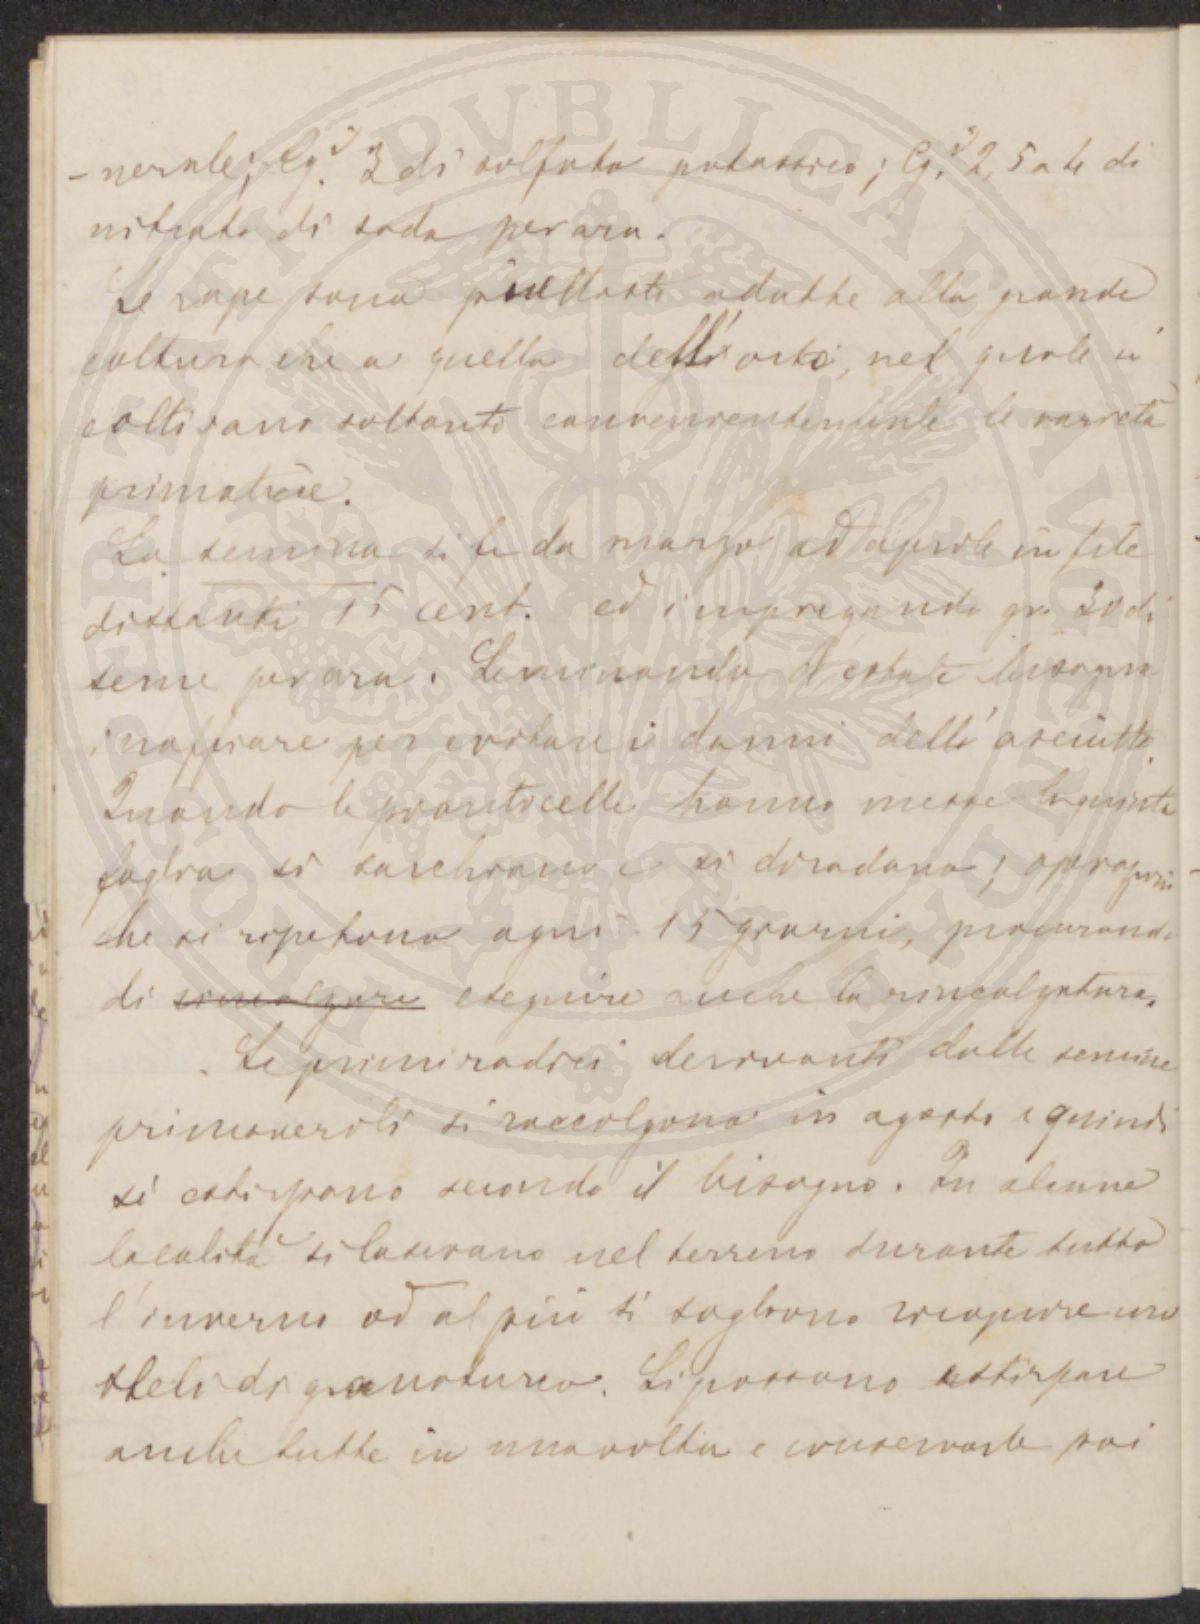 -nerale; Cg.i 3 di solfato potassico; Cg.i 2,5 a 4 di
nitrato di soda per ara.
Le rape sono piuttosto adatte alla grande
coltura che a quella dell'orto, nel quale si
coltivano soltanto convenientemente le varietà
primaticcie.
La semina si fa da marzo ad aprile in file
distanti 15 cent. ed impiegando gr. 30 di
seme per ara. Seminando d'estate bisogna
inaffiare per evitare i danni dell'asciutto.
Quando le pianticelle hanno messe la quinta
foglia si sarchiano e si diradano; operazioni
che si ripetono ogni 15 giorni, procurando
di rincalzare eseguire anche la rincalzatura.
Le prime radici derivanti dalle semine
primaverili si raccolgono in agosto e quindi
si estirpano secondo il bisogno. In alcune
località si lasciano nel terreno durante tutto
l'inverno od al più si sogliono ricoprire con
steli di granoturco. Si possono estirpare
anche tutte in una volta e conservarle poi
PUBLICAE